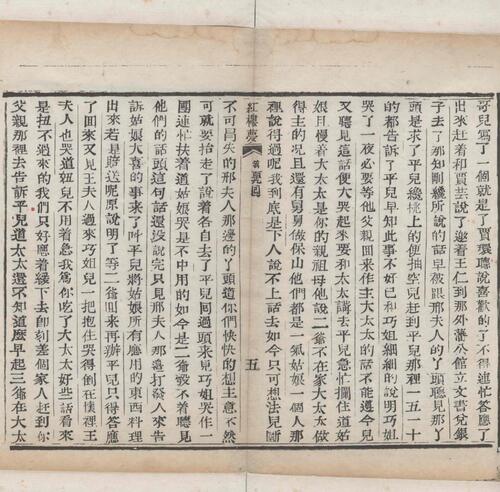 哥兒寫了一個就是了賈環聽說喜歡的了不得連忙答應了
出來赶着和賈芸說了邀着王仁到那外藩公館立文書兌銀
子去了那知剛纔所說的話早被跟那夫人的丫頭聽見那丫
頭是求了平兒纔挑上的便抽空兒赶到平兒那裡一五一十
的都告訴了平兒早知此事不好已和巧姐細細的說明巧姐
哭了一夜必要等他父親囬來作主大太太的話不能遵今兒
又聽見這話便大哭起來要和太太講去平兒急忙攔住道姑
娘且慢着大太太是你的親祖母他說二爺不在家大太太做
得主的况且還有舅舅做保山他們都是一氣姑娘一個人那
裡說得過呢我到底是下人說不上話去如今只可想法兒斷
紅樓夢
五
不可冒失的邢夫人那邊的丫頭道你們快快的想主意不然
可就要抬走了說着各自去了平兒囬過頭來見巧姐哭作一
團連忙扶着道姑娘哭是不中用的如今是二爺彀不着聽見
他們的話頭這句話還没說完只見那夫人那邊打發人來告
訴姑娘大喜的事來了叫平兒將姑娘所有應用的東西料理
出來若是賠送呢原說明了等二爺囬來再辦平兒只得答應
了囬來又見王夫人過來巧姐兒一把抱住哭得倒在懷裡王
夫人也哭道妞兒不用着急我爲你吃了大太太好些話看來
是扭不過來的我們只好應着緩下去卽刻差個家人赶到你
父親那裡去告訴平兒道太太還不知道麽早起三爺在大太